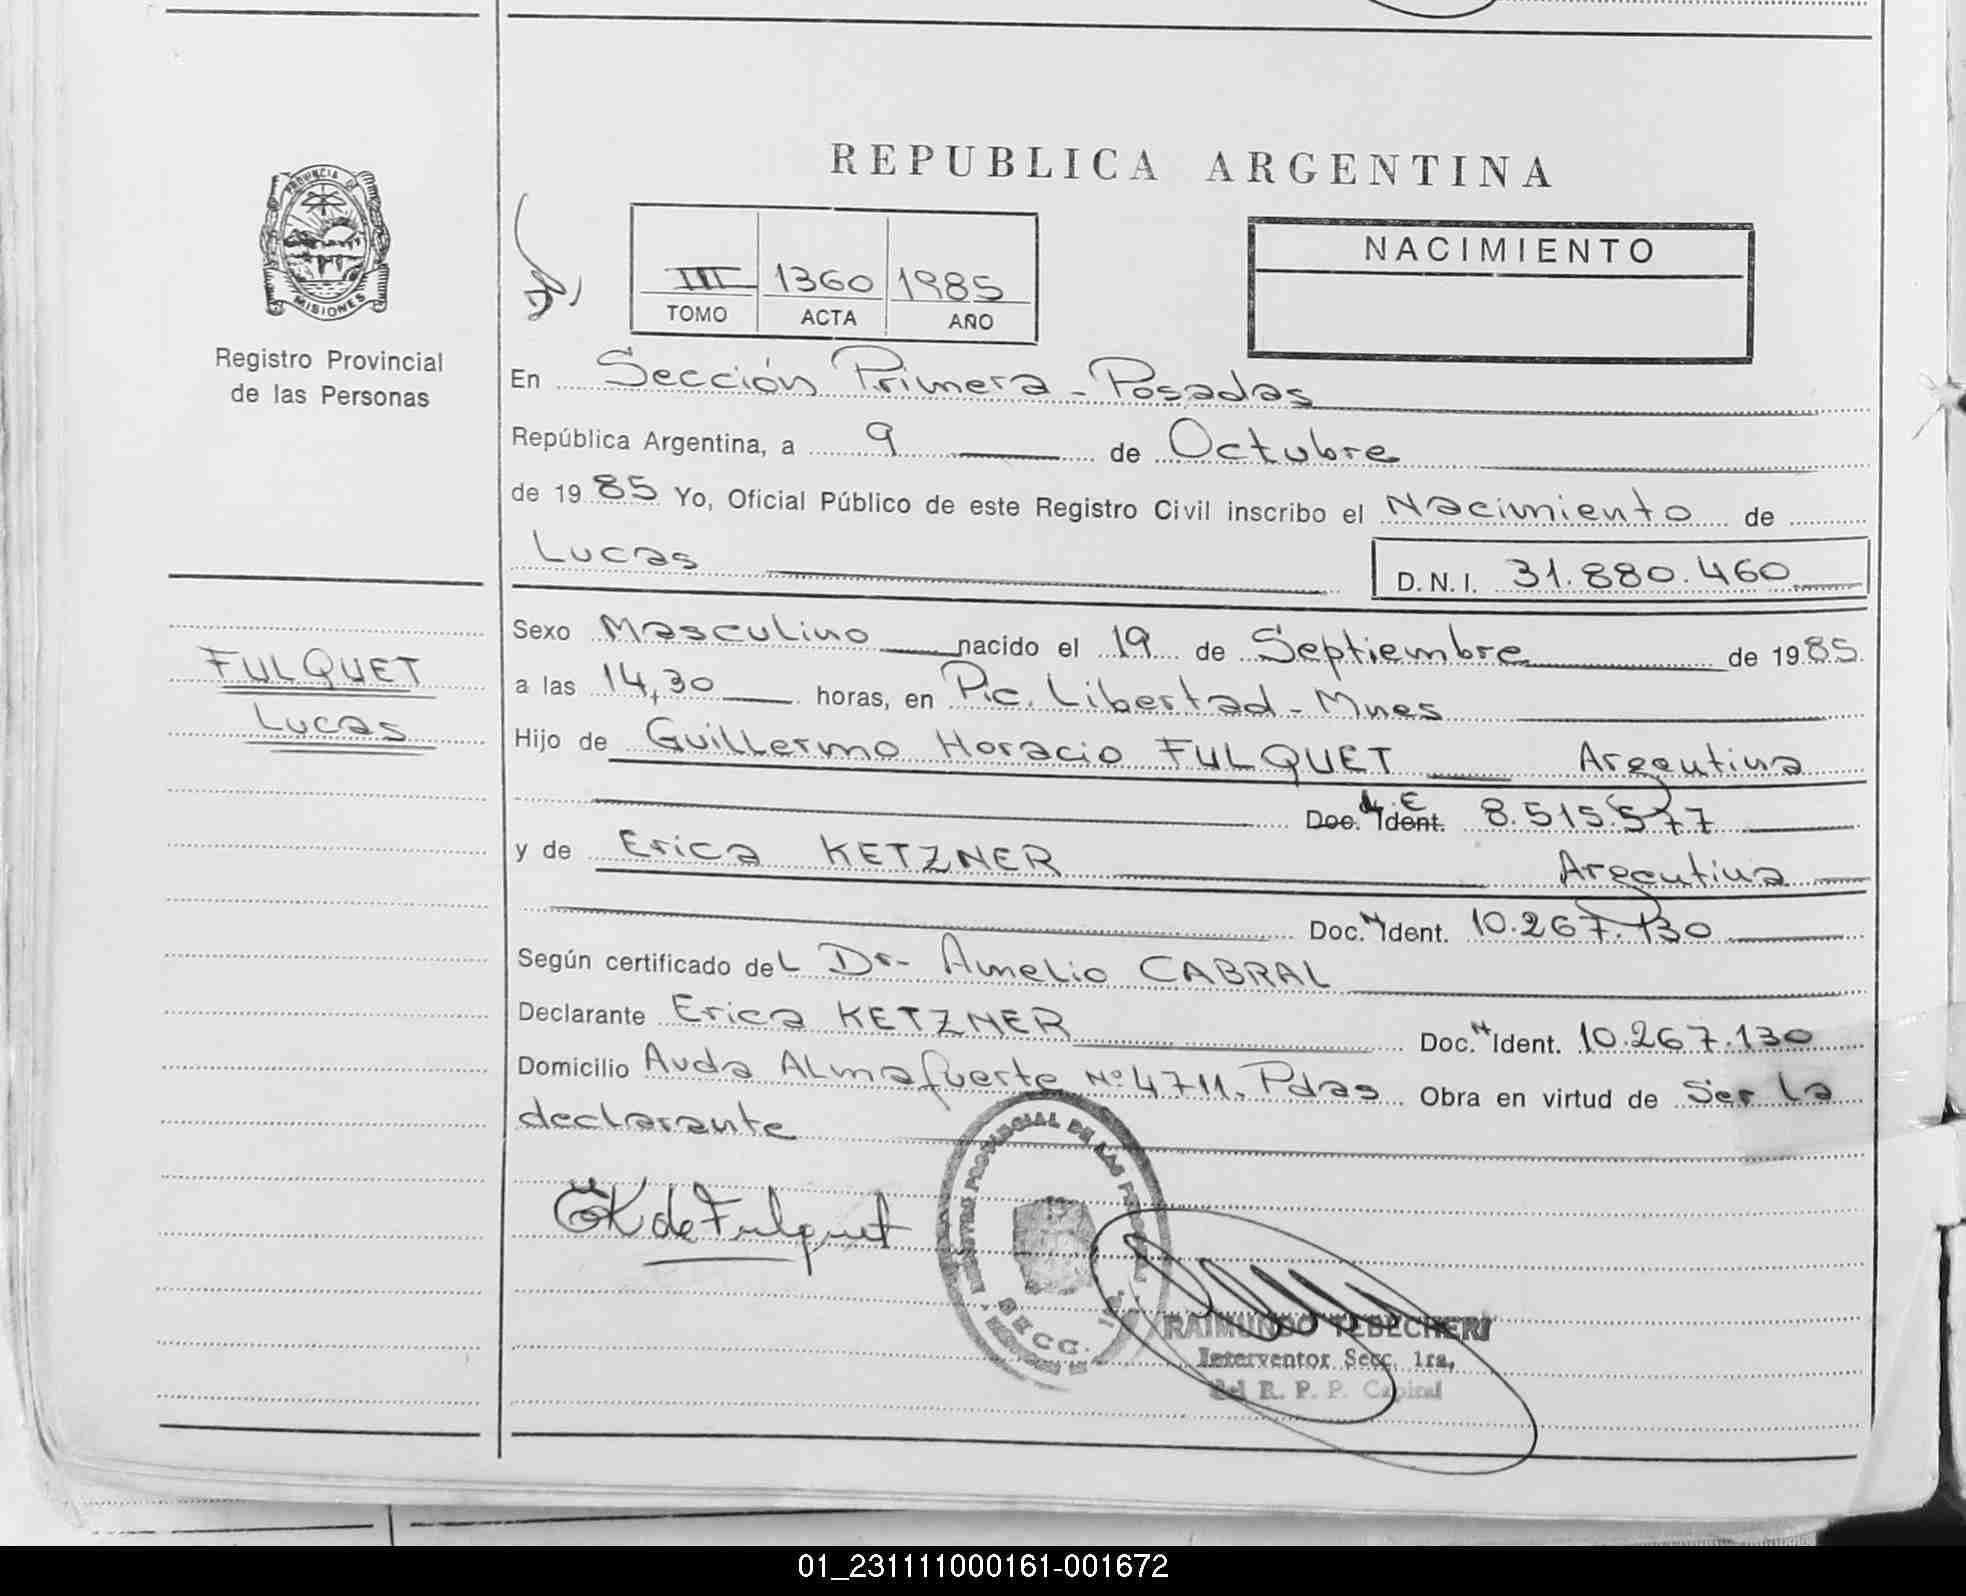 REPUBLICA ARGENTINA
PROVINCIA DE
MISIONES
Registro Provincial
de las Personas
III 1360 1985
TOMO ACTA AÑO
NACIMIENTO
En Sección Primera - Posadas
República Argentina, a 9 de Octubre
de 19 85 Yo, Oficial Público de este Registro Civil inscribo el Nacimiento de
Lucas
D.N.I. 31.880.460
FULQUET
Lucas
Sexo Masculino nacido el 19 de Septiembre de 19 85
a las 14,30 horas, en Pic. Libertad - Mnes
Hijo de Guillermo Horacio FULQUET Argentina
Doc. Ident. 8.515.577
y de Erica KETZNER Argentina
Doc. N Ident. 10.267.130
Según certificado del Dr. Amelio CABRAL
Declarante Erica KETZNER Doc. N Ident. 10.267.130
Domicilio Avda Almafuerte Nº 4711. Pdas Obra en virtud de Ser la
declarante
EK de Fulquet
PROVINCIAL DE LAS
SECC. 1ra.
RAIMUNDO TEBECHERI
Interventor Secc. 1ra.
del R. P. P. Capital
01_231111000161-001672